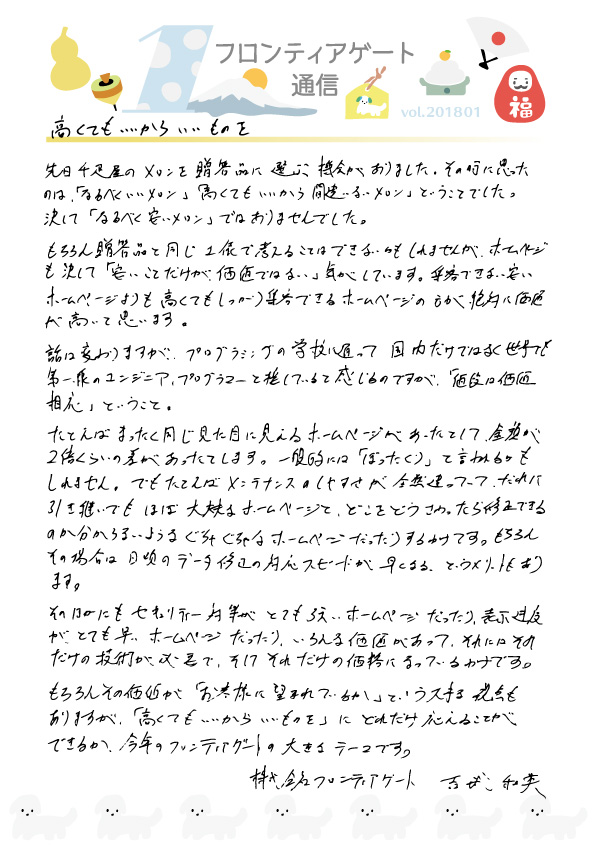 フロンティアゲート
通信
vol.201801
福
高くてもいいから いいものを
先日千疋屋のメロンを贈答品に選ぶ機会がありました。その時に思った
のは、「なるべくいいメロン」「高くてもいいから間違いないメロン」ということでした。
決して「なるべく安いメロン」ではありませんでした。
もちろん贈答品と同じ土俵で考えることはできないかもしれませんが、ホームページ
も決して「安いことだけが価値ではない」気がしています。集客できない安い
ホームページよりも高くてもしっかり集客できるホームページのほうが絶対に価値
が高いと思います。
話は変わりますが、プログラミングの学校に通って国内だけではなく世界でも
第一線のエンジニア、プログラマーと接していると感じるのですが、「値段は価値
相応」ということ。
たとえばまったく同じ見た目に見えるホームページがあったとして、金額が
2倍くらいの差があったとします。一般的には「ぼったくり」と言われるかも
しれません。でもたとえばメンテナンスのしやすさが全然違っていて、だれに
引き継いでもほぼ大丈夫なホームページと、どこをどうさわったら修正できる
のか分からないようなぐちゃぐちゃなホームページだったりするわけです。もちろん
その場合は日頃のデータ修正の対応スピードが早くなる、というメリットもあり
ます。
そのほかにもセキュリティー対策がとても強いホームページだったり、表示速度
がとても早いホームページだったり、いろんな価値があって、それにはそれ
だけの技術が必要で、そしてそれだけの価格になっているわけです。
もちろんその価値が「お客様に望まれているか」という大事な視点も
ありますが、「高くてもいいからいいものを」にどれだけ応えることが
できるか、今年のフロンティアゲートの大きなテーマです。
株式会社フロンティアゲート